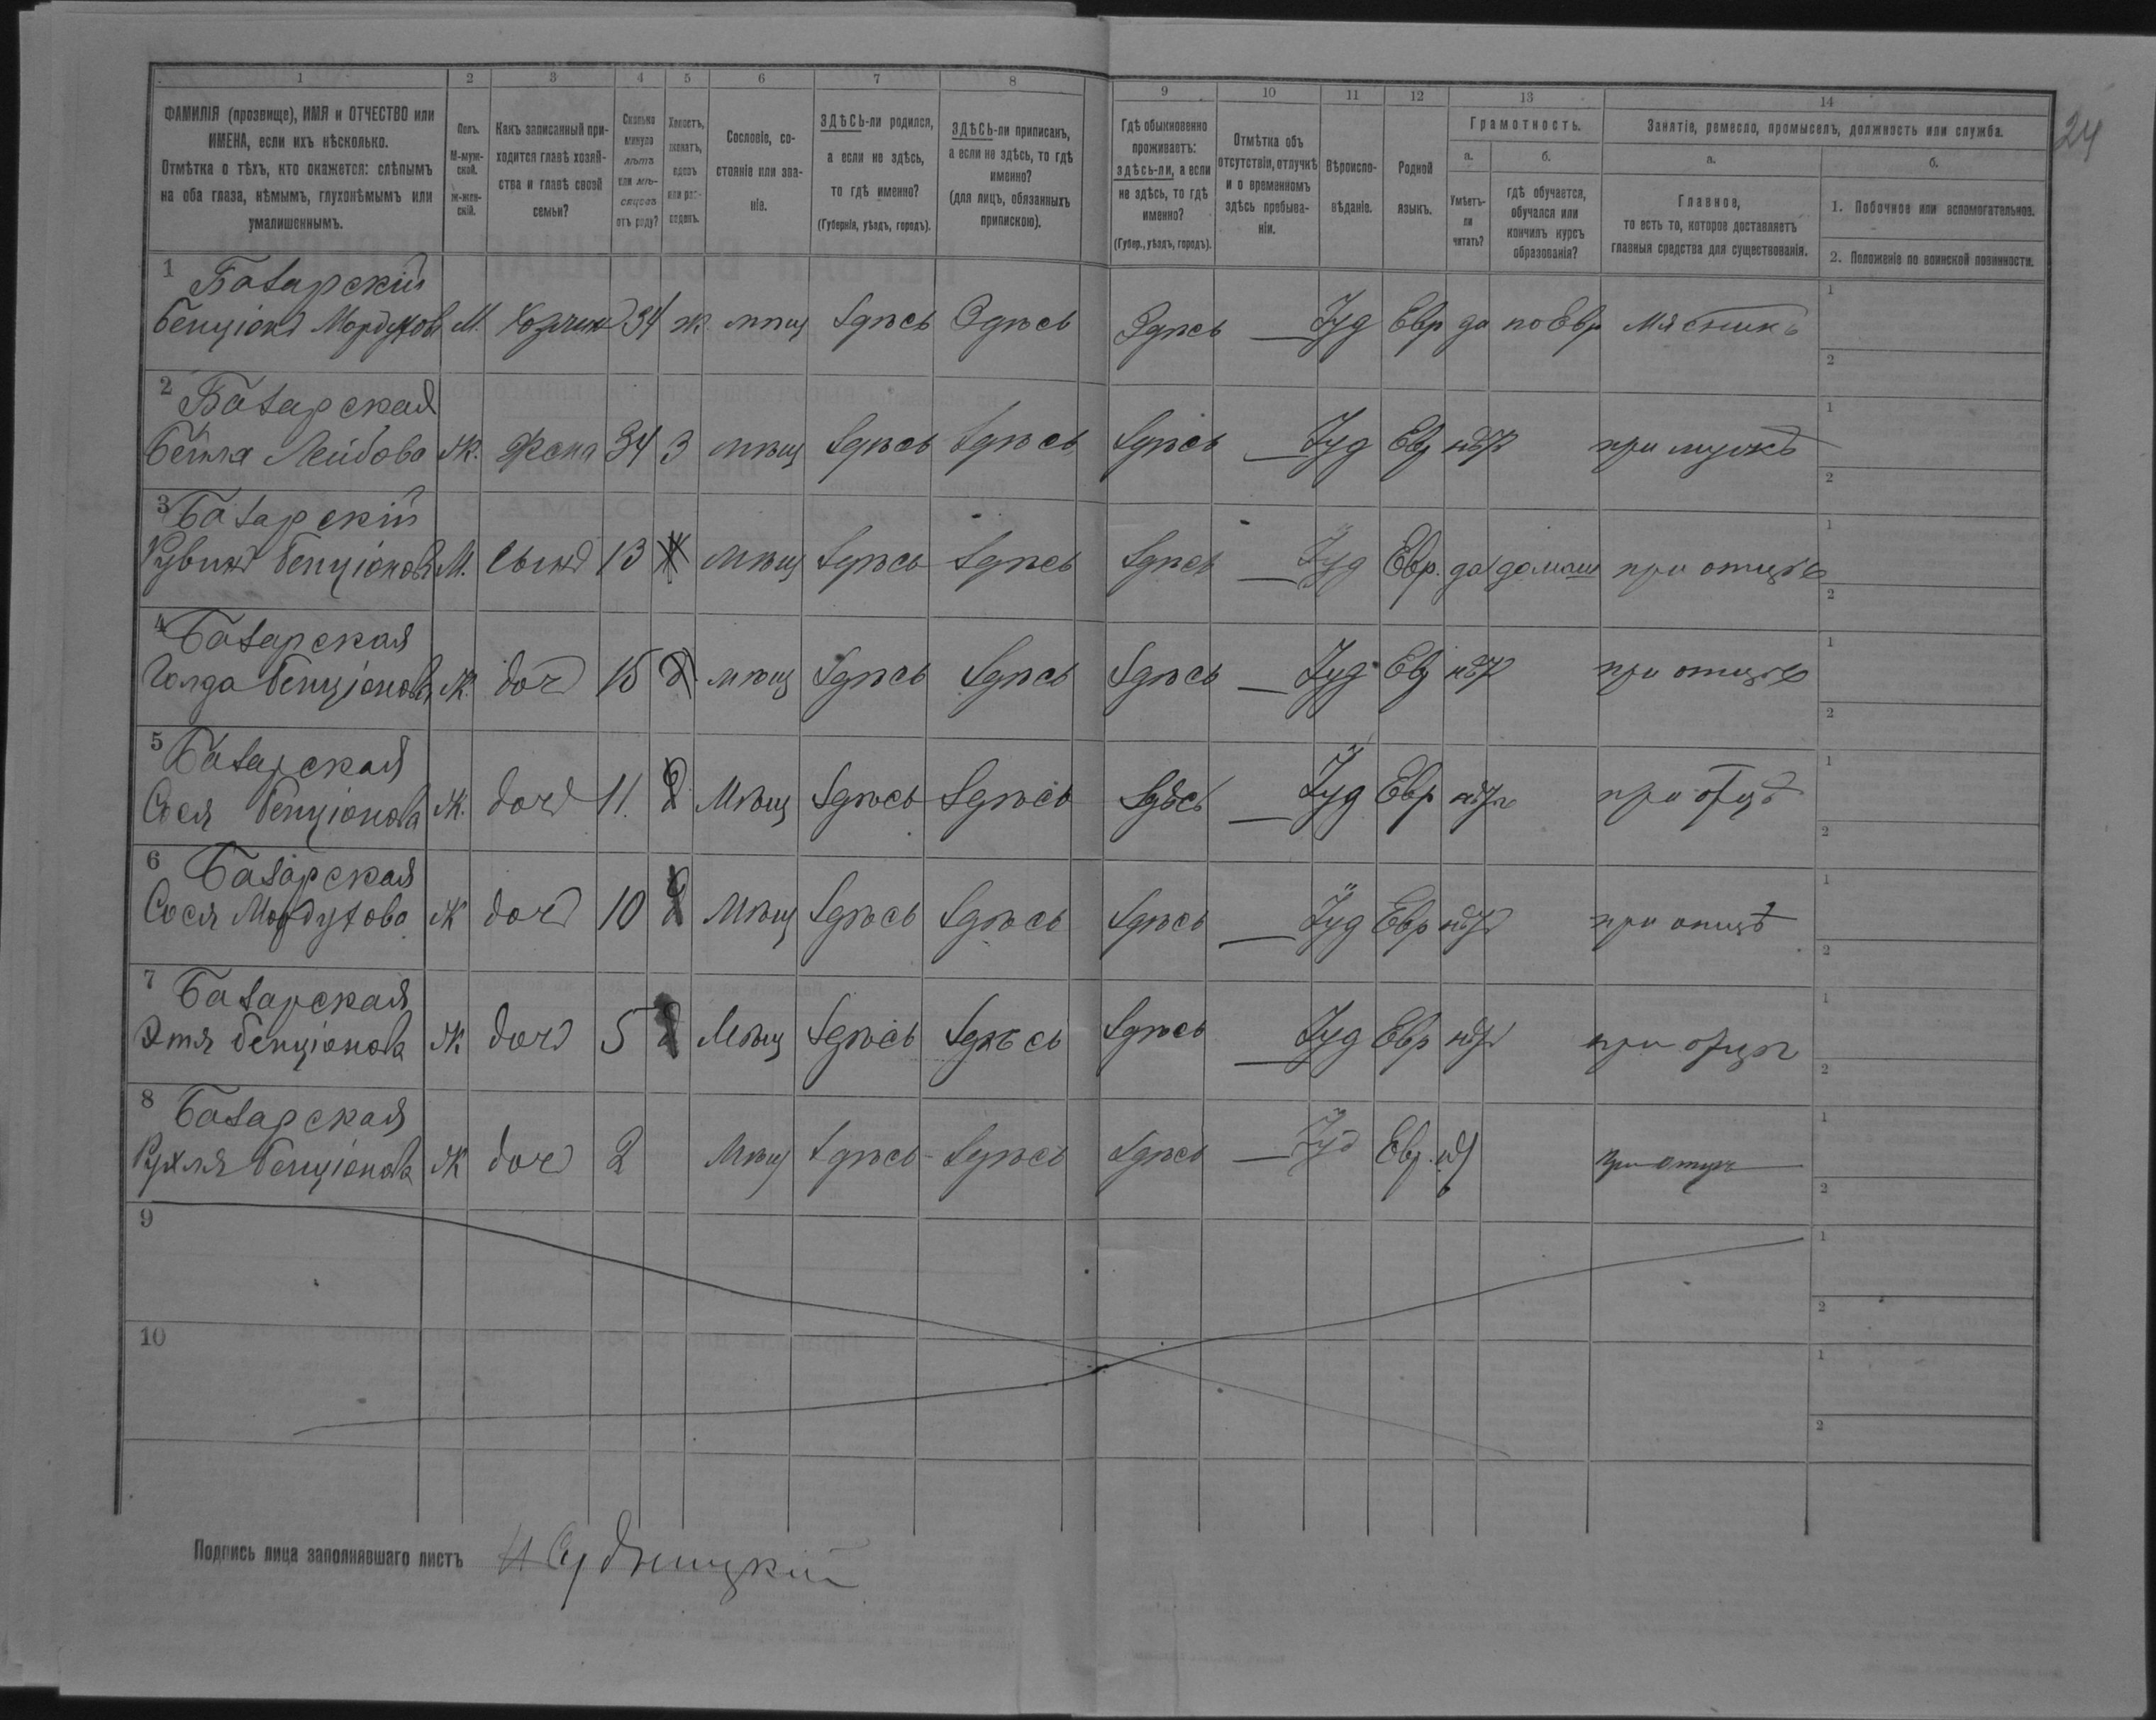 24
1 2 3 4 5 6 7 8 9 10 11 12 13 14
ФАМИЛІЯ (прозвище), ИМЯ и ОТЧЕСТВО или
ИМЕНА, если ихъ нѣсколько.
Отмѣтка о тѣхъ, кто окажется: слѣпымъ
на оба глаза, нѣмымъ, глухонѣмымъ или
умалишеннымъ.
Полъ.
М-муж-
ской.
Ж-жен-
скій.
Какъ записанный при-
ходится главѣ хозяй-
ства и главѣ своей
семьи?
Сколько
минуло
лѣтъ
или мѣ-
сяцевъ
отъ роду?
Холостъ,
женатъ,
вдовъ
или раз-
веденъ.
Сословіе, со-
стояніе или зва-
ніе.
ЗДѢСЬ-ли родился,
а если не здѣсь,
то гдѣ именно?
(Губернія, уѣздъ, городъ).
ЗДѢСЬ-ли приписанъ,
а если не здѣсь, то гдѣ
именно?
(для лицъ, обязанныхъ
припискою).
Гдѣ обыкновенно
проживаетъ:
здѣсь-ли, а если
не здѣсь, то гдѣ
именно?
(Губер., уѣздъ, городъ).
Отмѣтка объ
отсутствіи, отлучкѣ
и о временномъ
здѣсь пребыва-
ніи.
Вѣроиспо-
вѣданіе.
Родной
языкъ.
Грамотность.
а.
Умѣетъ-
ли
читать?
б.
гдѣ обучается,
обучался или
кончилъ курсъ
образованія?
Занятіе, ремесло, промыселъ, должность или служба.
а.
Главное,
то есть то, которое доставляетъ
главныя средства для существованія.
б.
1. Побочное или вспомогательное.
2. Положеніе по воинской повинности.
1 Базарскій
Бенціонъ Мордуховъ М. Хозяинъ 34 ж мѣщ Здѣсь Здѣсь Здѣсь — Іуд Евр да по Евр Мясникъ 1
2
2 Базарская
Бейля Лейбова Ж. Жена 34 З мѣщ Здѣсь Здѣсь Здѣсь — Іуд Евр нѣтъ при мужѣ 1
2
3 Базарскій
Рувинъ Бенціоновъ М. сынъ 13 мѣщ Здѣсь Здѣсь Здѣсь — Іуд Евр. да домаш при отцѣ 1
2
4 Базарская
Голда Бенціонова Ж. доч 15 мѣщ Здѣсь Здѣсь Здѣсь — Іуд Евр нѣтъ при отцѣ 1
2
5 Базарская
Сося Бенціонова Ж. доч 11. Мѣщ Здѣсь Здѣсь Здѣсь — Іуд Евр нѣтъ при отцѣ 1
2
6 Базарская
Сося Мордухова Ж доч 10 Мѣщ Здѣсь Здѣсь Здѣсь — Іуд Евр нѣтъ при отцѣ 1
2
7 Базарская
Этя Бенціонова Ж доч 5 Мѣщ Здѣсь Здѣсь Здѣсь — Іуд Евр нѣтъ при отцѣ 1
2
8 Базарская
Рухля Бенціонова Ж доч 2 Мѣщ Здѣсь Здѣсь Здѣсь — Іуд Евр. нѣт при отцѣ 1
2
9 1
2
10 1
2
Подпись лица заполнявшаго листъ